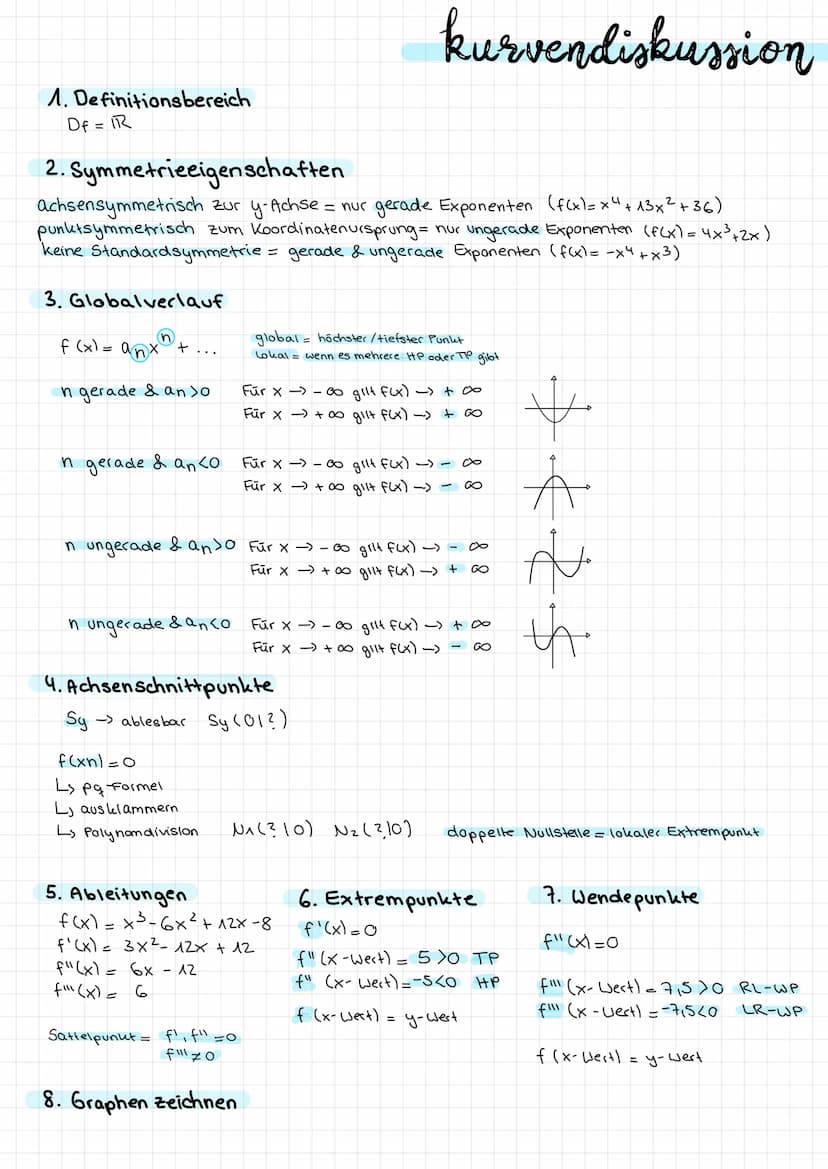 kurvendiskussion
1. Definitionsbereich
Df = ℝ
2. Symmetrieeigenschaften
achsensymmetrisch zur y-Achse = nur gerade Exponenten (f(x) = x⁴ + 13x² + 36)
punktsymmetrisch zum Koordinatenursprung = nur ungerade Exponenten (f(x) = 4x³ + 2x)
keine Standardsymmetrie = gerade & ungerade Exponenten (f(x) = -x⁴ + x³)
3. Globalverlauf
f(x) = aₙxⁿ + ...
global = höchster / tiefster Punkt
lokal = wenn es mehrere HP oder TP gibt
n gerade & an>0 Für x → - ∞ gilt f(x) → + ∞
Für x → + ∞ gilt f(x) → + ∞
n gerade & an<0 Für x → - ∞ gilt f(x) → - ∞
Für x → + ∞ gilt f(x) → - ∞
n ungerade & an>0 Für x → - ∞ gilt f(x) → - ∞
Für x → + ∞ gilt f(x) → + ∞
n ungerade & an<0 Für x → - ∞ gilt f(x) → + ∞
Für x → + ∞ gilt f(x) → - ∞
4. Achsenschnittpunkte
Sy → ablesbar Sy (0|?)
f(xn) = 0
↳ pq-Formel
↳ ausklammern
↳ Polynomdivision N₁(?|0) N₂(?|0) doppelte Nullstelle = lokaler Extrempunkt
5. Ableitungen
f(x) = x³ - 6x² + 12x - 8
f'(x) = 3x² - 12x + 12
f''(x) = 6x - 12
f'''(x) = 6
Sattelpunkt = f', f'' = 0
f''' ≠ 0
6. Extrempunkte
f'(x) = 0
f'' (x-Wert) = 5 > 0 TP
f'' (x-Wert) = -5 < 0 HP
f (x-Wert) = y-Wert
7. Wendepunkte
f''(x) = 0
f''' (x-Wert) = 7,5 > 0 RL-WP
f''' (x-Wert) = -7,5 < 0 LR-WP
f (x-Wert) = y-Wert
8. Graphen zeichnen